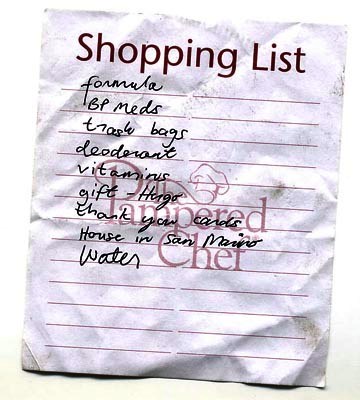 Shopping List
formula
BP Meds
trash bags
deoderant
vitamins
gift Hugo
thank you cards
House in San Marino
Water
The
Pampered
Chef